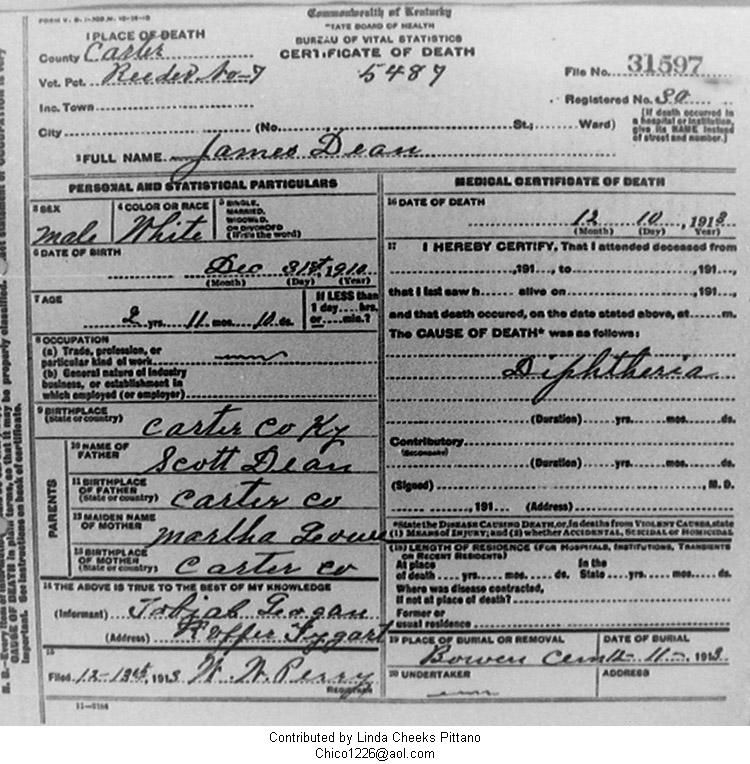 FORM V. S. 1-
Commonwealth of Kentucky
STATE BOARD OF HEALTH
BUREAU OF VITAL STATISTICS
CERTIFICATE OF DEATH
5487
1 PLACE OF DEATH
County Carter
Vot. Pct. Reeder No-7
Inc. Town
City (No. St.; Ward)
File No. 31597
Registered No. 30
[If death occurred in
a hospital or institution,
give its NAME instead
of street and number.]
2 FULL NAME James Dean
PERSONAL AND STATISTICAL PARTICULARS
3 SEX
male
4 COLOR OR RACE
White
5 SINGLE,
MARRIED,
WIDOWED,
OR DIVORCED
(Write the word)
6 DATE OF BIRTH
Dec 31st, 1910
(Month) (Day) (Year)
7 AGE
2 yrs. 11 mos. 10 ds.
If LESS than
1 day....hrs.
or....min.?
8 OCCUPATION
(a) Trade, profession, or
particular kind of work
(b) General nature of industry
business, or establishment in
which employed (or employer)
9 BIRTHPLACE
(State or country)
Carter Co Ky
PARENTS
10 NAME OF
FATHER
Scott Dean
11 BIRTHPLACE
OF FATHER
(State or country)
Carter Co
12 MAIDEN NAME
OF MOTHER
Martha
13 BIRTHPLACE
OF MOTHER
(State or country)
Carter Co
14 THE ABOVE IS TRUE TO THE BEST OF MY KNOWLEDGE
(Informant)
(Address) Tygart
15
Filed 12-13th, 1913 W. W. Perry
REGISTRAR
11-3184
MEDICAL CERTIFICATE OF DEATH
16 DATE OF DEATH
12 10, 1913
(Month) (Day) (Year)
17 I HEREBY CERTIFY, That I attended deceased from
, 191..., to , 191...,
that I last saw h alive on , 191...,
and that death occured, on the date stated above, at m.
The CAUSE OF DEATH* was as follows:
Diphtheria
(Duration) yrs. mos. ds.
Contributory
(SECONDARY)
(Duration) yrs. mos. ds.
(Signed) , M. D.
, 191 (Address)
*State the DISEASE CAUSING DEATH, or, in deaths from VIOLENT CAUSES, state
(1) MEANS OF INJURY; and (2) whether ACCIDENTAL, SUICIDAL OR HOMICIDAL
(18) LENGTH OF RESIDENCE (FOR HOSPITALS, INSTITUTIONS, TRANSIENTS
OR RECENT RESIDENTS)
At place In the
of death yrs. mos. ds. State yrs. mos. ds.
Where was disease contracted,
if not at place of death?
Former or
usual residence
19 PLACE OF BURIAL OR REMOVAL
Bowen Cem
DATE OF BURIAL
12-11-, 1913
20 UNDERTAKER
ADDRESS
Contributed by Linda Cheeks Pittano
Chico1226@aol.com